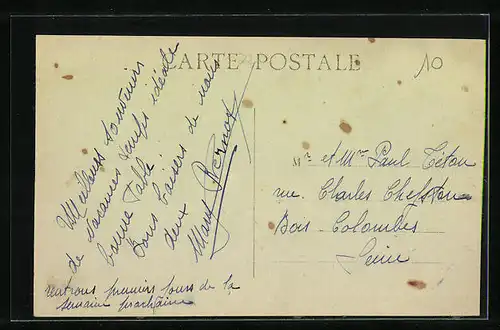 CARTE POSTALE
10
Meilleurs souvenirs
de vacances temps idéale
bonne table
bons baisers de nous
deux
Mr et Mme Paul Titon
rue Charles Chefson
Bois Colombes
Seine
rentrons premiers jours de la
semaine prochaine